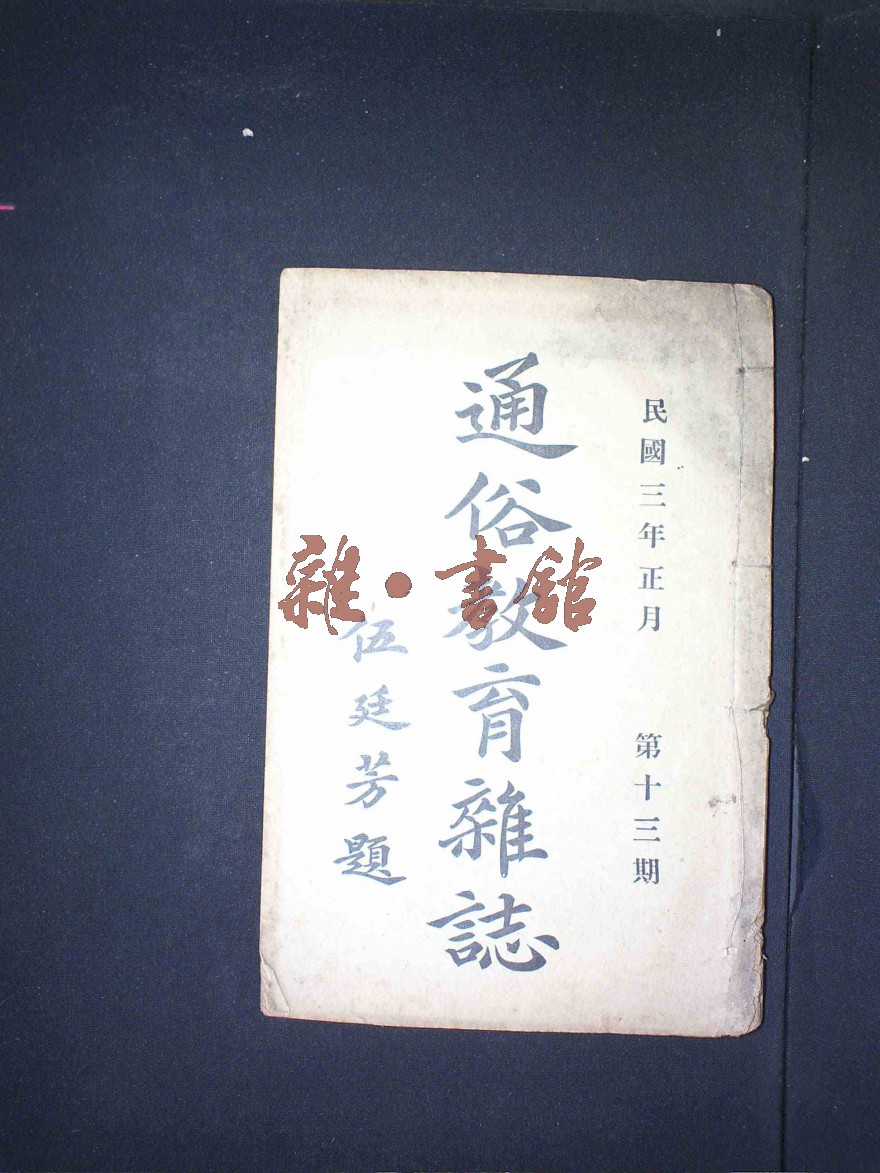 民國三年正月　第十三期
通俗教育雜誌
伍廷芳題
雜·書館